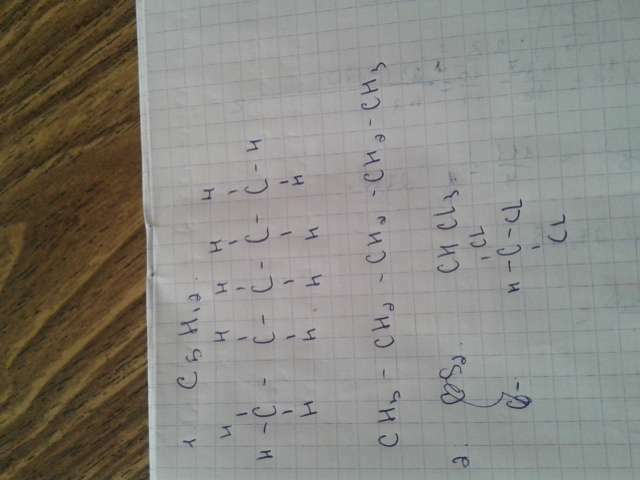 1 C5H12.
H H H H H
H - C - C - C - C - C - H
H H H H H
CH3 - CH2 - CH2 - CH2 - CH3
2. CHCl3
Cl
H - C - Cl
Cl